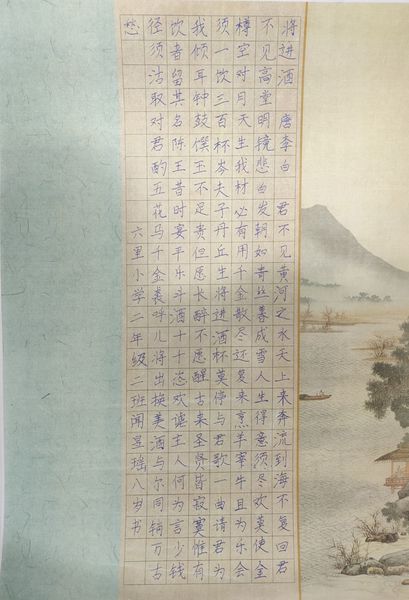 将进酒 唐李白 君不见黄河之水天上来奔流到海不复回君
不见高堂明镜悲白发朝如青丝暮成雪人生得意须尽欢莫使金
樽空对月天生我材必有用千金散尽还复来烹羊宰牛且为乐会
须一饮三百杯岑夫子丹丘生将进酒杯莫停与君歌一曲请君为
我倾耳钟鼓馔玉不足贵但愿长醉不愿醒古来圣贤皆寂寞惟有
饮者留其名陈王昔时宴平乐斗酒十千恣欢谑主人何为言少钱
径须沽取对君酌五花马千金裘呼儿将出换美酒与尔同销万古
愁 六里小学二年级二班闻昱瑶八岁书